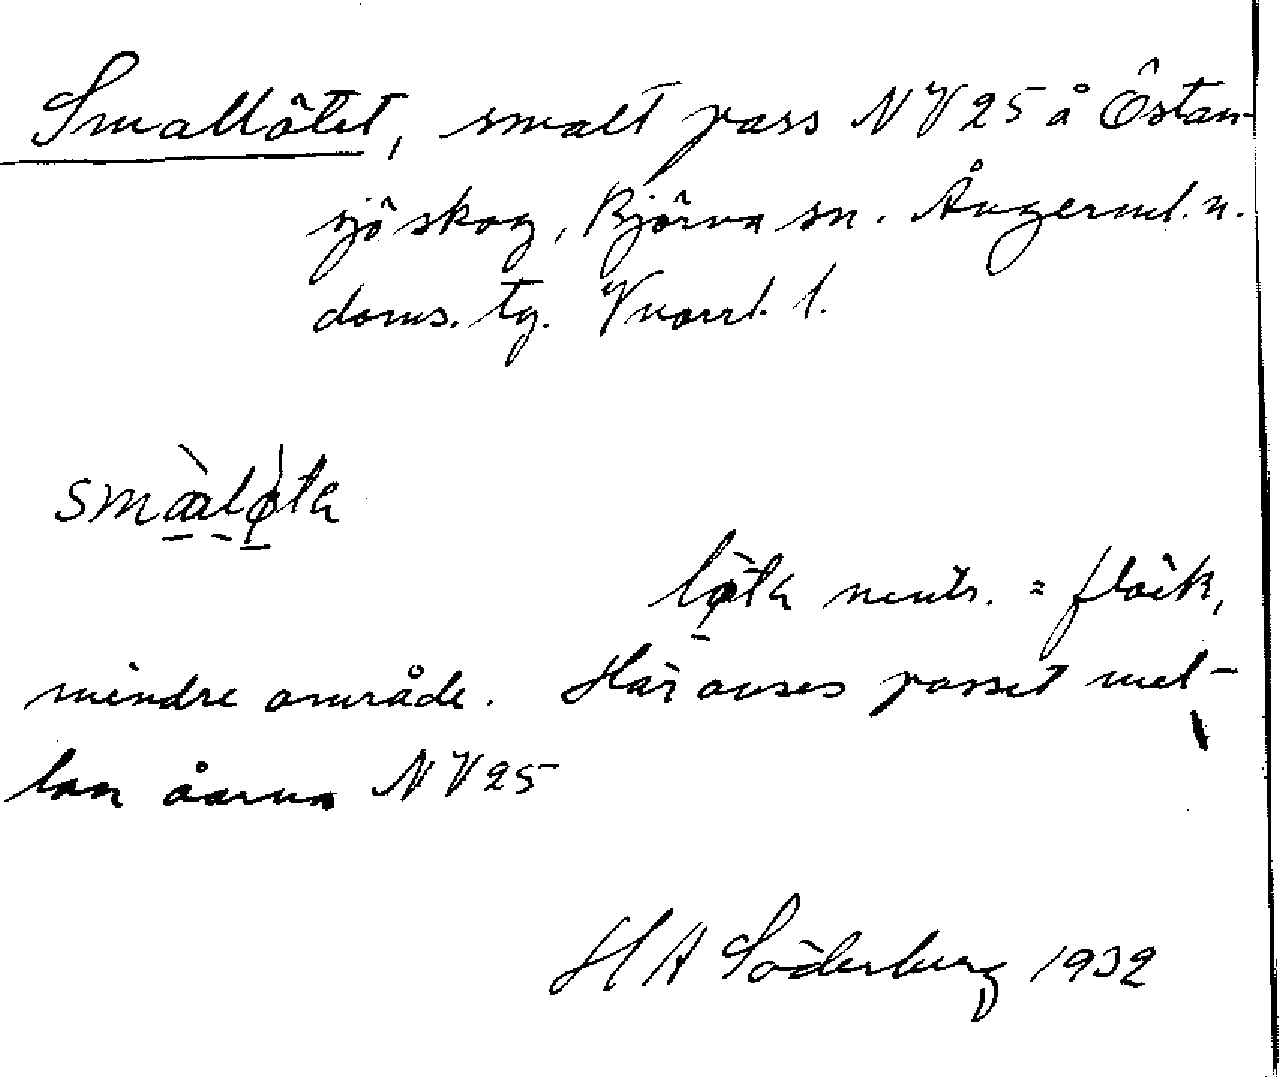 Smallötet, smalt pass NV25 å Östan-
sjö skog, Björna sn. Ångerml. n.
doms. tg. Vnorrl. l.
smalöta
löta neutr. = fläck,
mindre område. Här avses passet mel-
lan åarna NV25
H A Söderberg 1932